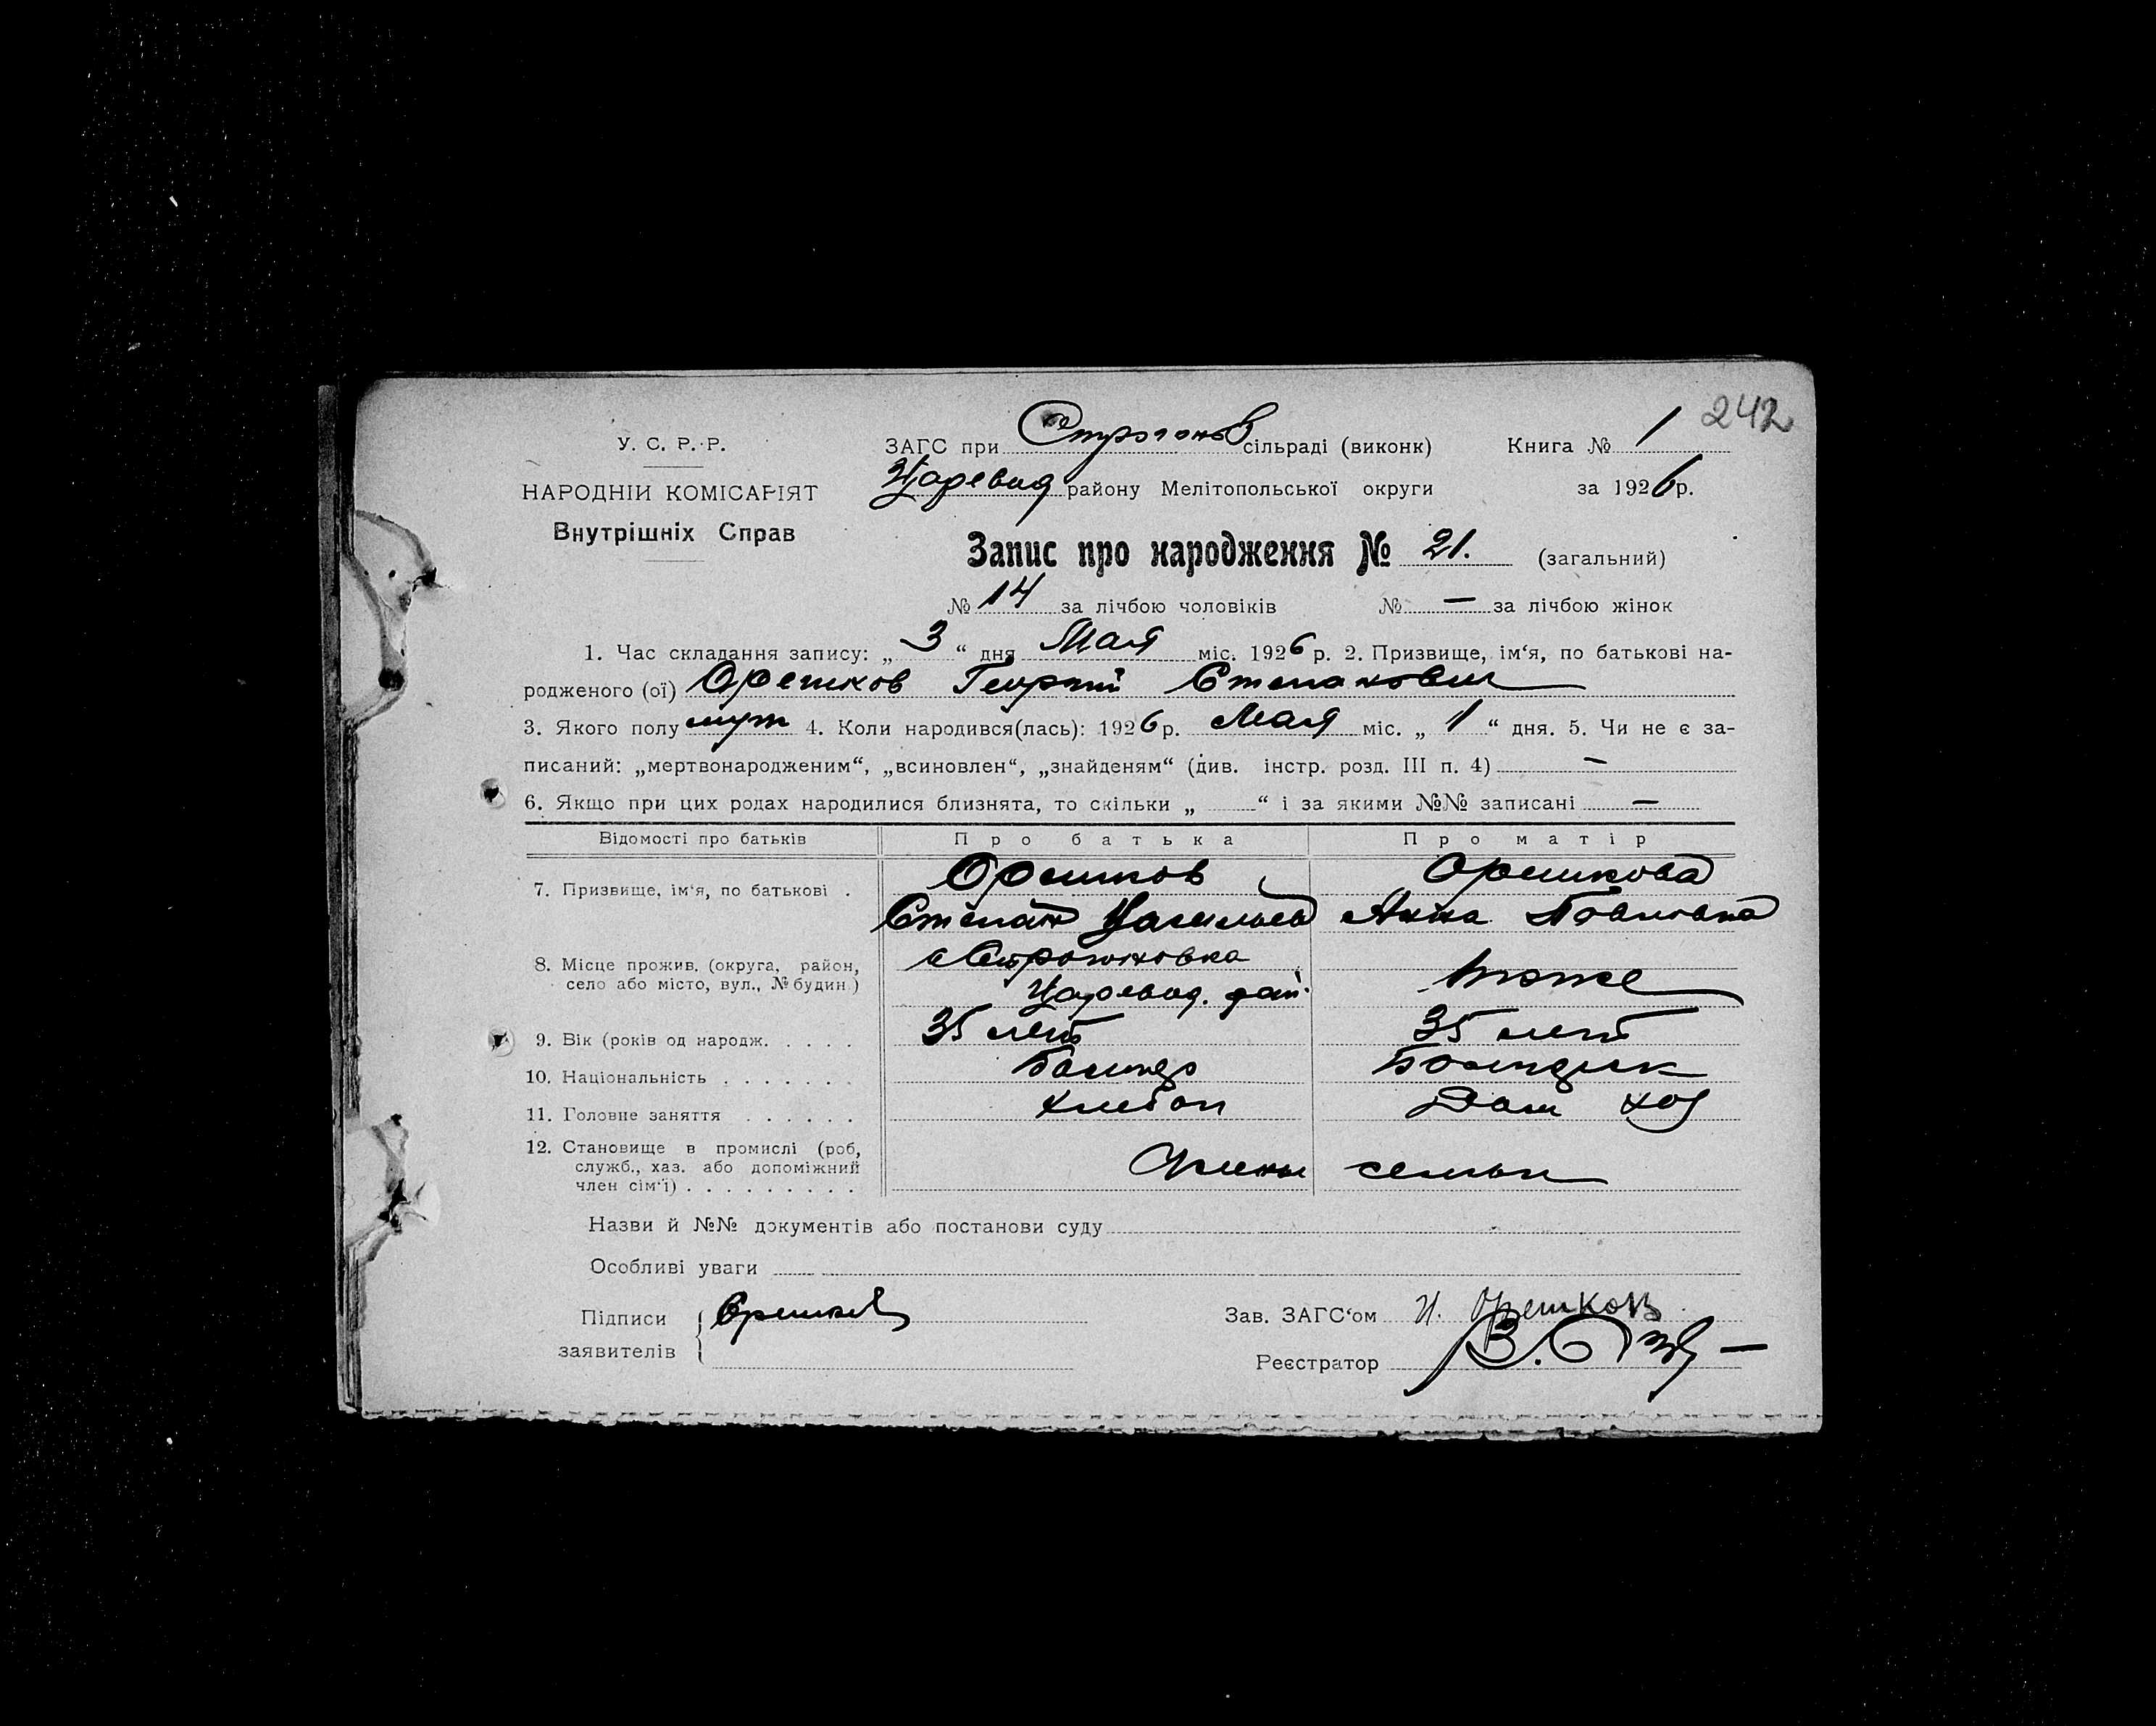 242
У. С. Р. Р.
ЗАГС при Строганов сільраді (виконк) Книга № 1
НАРОДНІЙ КОМІСАРІЯТ
Царевод району Мелітопольської округи за 1926 р.
Внутрішніх Справ
Запис про народження № 21. (загальний)
№ 14 за лічбою чоловіків № — за лічбою жінок
1. Час складання запису: „ 3 “ дня Мая міс. 1926 р. 2. Призвище, ім‘я, по батькові на-
родженого (ої) Орешков Георгий Степанович
3. Якого полу муж 4. Коли народився(лась): 1926 р. Мая міс. „ 1 “ дня. 5. Чи не є за-
писаний: „мертвонародженим“, „всиновлен“, „знайденям“ (див. інстр. розд. III п. 4) —
6. Якщо при цих родах народилися близнята, то скільки „ “ і за якими №№ записані —
Відомості про батьків Про батька Про матір
7. Призвище, ім‘я, по батькові . Орешков Орешкова
Степан Анна Павловна
8. Місце прожив. (округа, район, село або місто, вул., № будин.) с Строгоновка
Царевод. рай. тоже
9. Вік (років од народж. . . . . 35 лет 35 лет
10. Національність . . . . . . .
11. Головне заняття . . . . . . хлебоп Дом хоз
12. Становище в промислі (роб,
служб., хаз. або допоміжний
член сім‘ї) . . . . . . . . . Члены семьи
Назви й №№ документів або постанови суду
Особливі уваги
Підписи Орешков Зав. ЗАГС‘ом И. Орешков
заявителів
Реєстратор В.